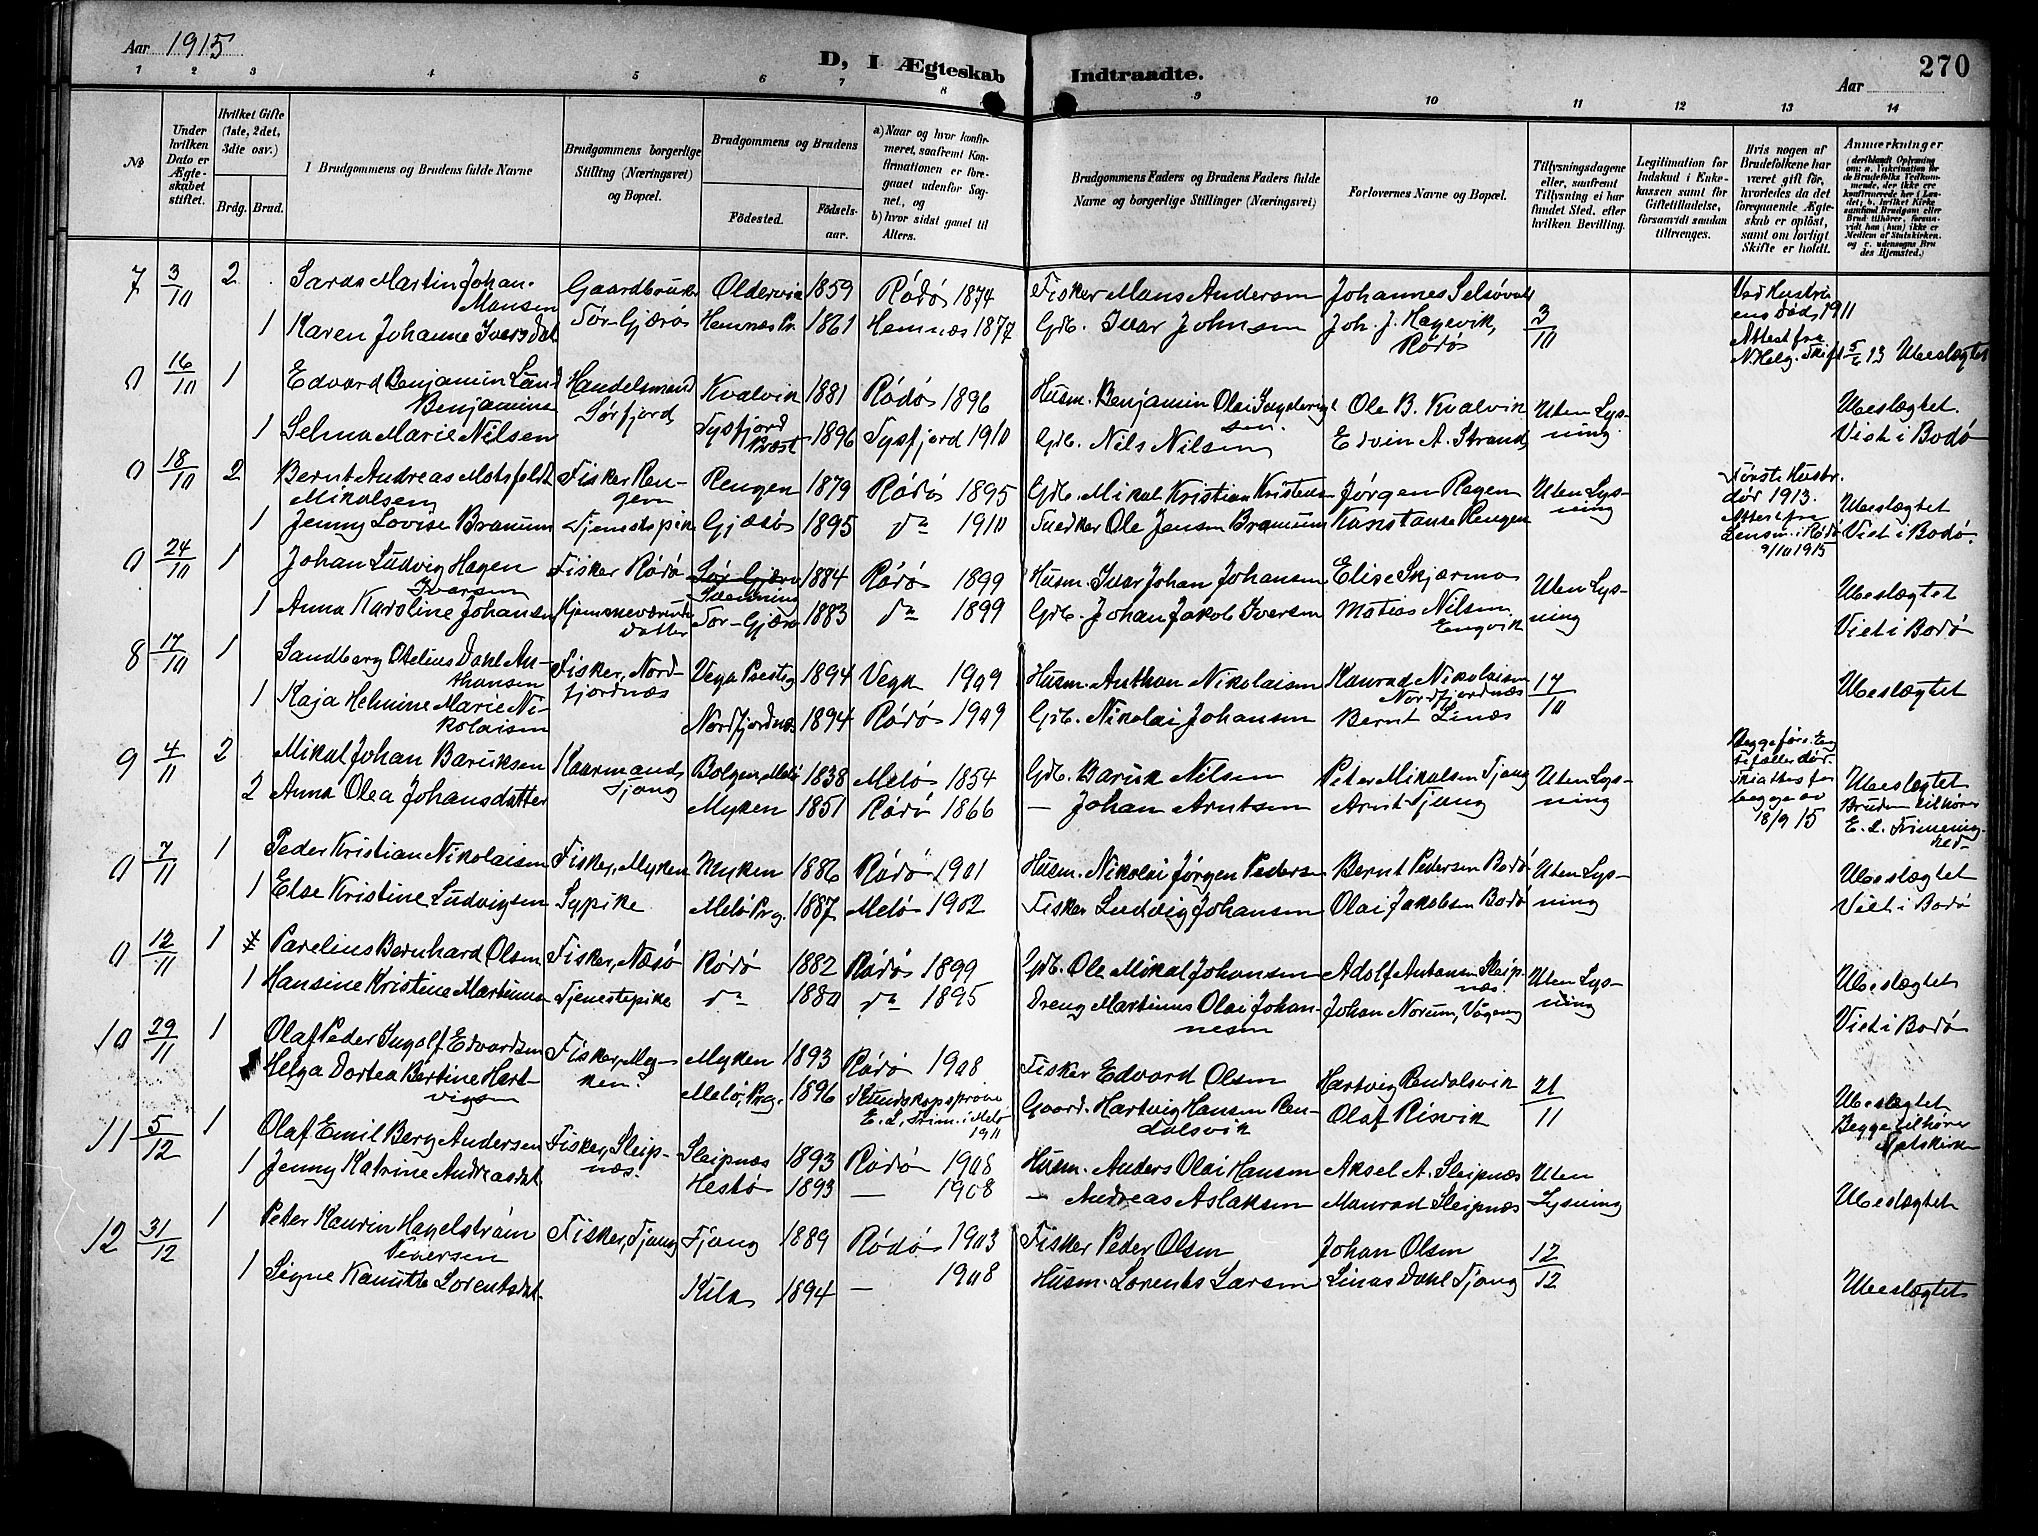 Aar 1915
D, I Ægteskab Indtraadte.
270
Aar
1 2 3 4 5 6 7 8 9 10 11 12 13 14
No
Under hvilken Dato er Ægteskabet stiftet.
Hvilket Gifte (1ste, 2det, 3die osv.)
Brdg. Brud.
I Brudgommens og Brudens fulde Navne
Brudgommens borgerlige Stilling (Næringsvei) og Bopæl.
Brudgommens og Brudens
Födested.
Födselsaar.
a) Naar og hvor konfirmeret, saafremt Konfirmationen er foregaaet udenfor Sognet, og
b) hvor sidst gaaet til Alters.
Brudgommens Faders og Brudens Faders fulde Navne og borgerlige Stillinger (Næringsvei)
Forlovernes Navne og Bopæl.
Tillysningsdagene eller, saafremt Tillysning ei har fundet Sted, efter hvilken Bevilling.
Legitimation for Indskud i Enkekassen samt for Giftetilladelse, forsaavidt saadan tiltrænges.
Hvis nogen af Brudefolkene har været gift før, hvorledes da det foregaaende Ægteskab er oplöst, samt om lovligt Skifte er holdt.
Anmærkninger
7 3/10 2 Martin Johan Gaardbruker Oldervik 1859 Rödö 1874 Fisker Mons Andersen Johannes Selsövik
Monsen
1 Karen Johanne Iversdat Sör-Gjærö Hemnes Pr. 1861 Hemnes 1877 Gdb. Ivar Johnsen Joh. J. Hagevik, Rödö 3/10
Ved Hustruens död, 1911
Attest fra N. Helg. Skift 5/6 13 Ubeslægtet
0 16/10 1 Edvard Benjamin Lund Handelsmand Kvalvik 1881 Rödö 1896 Husm. Benjamin Olai Ole B. Kvalvik Uten Lysning Ubeslægtet.
Benjaminsen Sörfjord
1 Selma Marie Nilsen Tysfjord Præst 1896 Tysfjord 1910 Gdb. Nils Nilsen Edvin A. Strand Viet i Bodö
0 18/10 2 Bernt Andreas Motsfeldt Fisker Rengen Rengen 1879 Rödö 1895 Gdb. Mikal Kristian Kristensen Jörgen Rengen Uten Lysning Förste Hustr. dör 1913. Ubeslægtet
Mikalsen
1 Jenny Lovise Brauum Tjenestepike Gjæsö 1895 do 1910 Ole Jensen Brauum Konstanse Rengen Attest fra Lensm. i Rödö 9/10 1915 Viet i Bodö.
0 24/10 1 Johan Ludvig Hagen Fisker Rödö Sör-Gjærö 1884 Rödö 1899 Husm. Ivar Johan Johansen Elise Skjærmo Uten Lysning Ubeslægtet
Iversen
1 Anna Karoline Johansen Hjemmeværende Datter Sör-Gjærö 1883 do 1899 Gdb. Johan Jakob Iversen Matias Nilsen, Engvik Viet i Bodö
8 17/10 1 Sandberg Otelius Dahl Anthonsen Fisker, Nordfjordnæs Vega Præsteg 1894 Vega 1909 Husm. Anthon Nikolaisen Konrad Nikolaisen Nordfjordnæs 17/10 Ubeslægtet
1 Kaja Helmine Marie Nikolaisen Nordfjordnæs 1894 Rödö 1909 Gdb. Nikolai Johansen Bernt Linæs
9 4/11 2 Mikal Johan Baruksen Kaarmand, Tjong Bolgen, Melö 1838 Melö 1854 Gdb. Baruk Nilsen Peter Mikalsen Tjong Uten Lysning Ubeslægtet
2 Anna Olea Johansdatter Myken 1851 Rödö 1866 — Johan Arntsen Arnt Tjong 18/9 15 Bruden tilhörer E. L. Frimenighed
0 7/11 1 Peder Kristian Nikolaisen Fisker, Myken Myken 1886 Rödö 1901 Husm. Nikolai Jörgen Pedersen Bernt Pedersen Bodö Uten Lysning Ubeslægtet
1 Else Kristine Ludvigsen Sypike Melö Prg. 1887 Melö 1902 Fisker Ludvig Johansen Olai Jakobsen Bodö Viet i Bodö
0 12/11 1 Parelius Bernhard Olsen Fisker, Næsö Rödö 1882 Rödö 1899 Gdb. Ole Mikal Johansen Adolf Antonsen Sleipnæs Uten Lysning Ubeslægtet
1 Hansine Kristine Martinusen Tjenestepike do 1880 do 1895 Dreng Martinus Olai Johannesen Johan Norum, Vågeng Viet i Bodö
10 29/11 1 Olaf Peder Ingolf Edvardsen Fisker, Myken. Myken 1893 Rödö 1908 Fisker Edvard Olsen Hartvig Rendalsvik 21/11 Ubeslægtet
Helga Dortea Bertine Hartvigsen Melö, Prg. 1896 Kundskapspröve E. L. Frim. i Melö 1911 Gaard. Hartvig Hansen Rendalsvik Olaf Risvik Begge tilhörer
11 5/12 1 Olaf Emil Berg Andersen Fisker, Sleipnæs. Sleipnæs 1893 Rödö 1908 Husm. Anders Olai Hansen Aksel A. Sleipnæs Uten Lysning
1 Jenny Katrine Andreasdat. Hestö 1893 — 1908 — Andreas Aslaksen Monrad Sleipnæs Ubeslægtet
12 31/12 1 Peter Kaurin Hagelström Fisker, Tjong Tjong 1889 Rödö 1903 Fisker Peder Olsen Johan Olsen 12/12
Pedersen
1 Signe Kamilla Lorentsdat. Kila 1894 — 1908 Husm. Lorents Larsen Linas Dahl Tjong Ubeslægtet